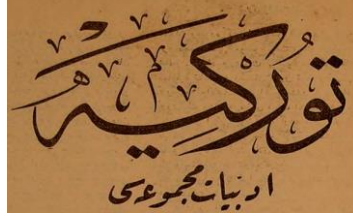 توركيه
ادبيات مجموعه‌سى